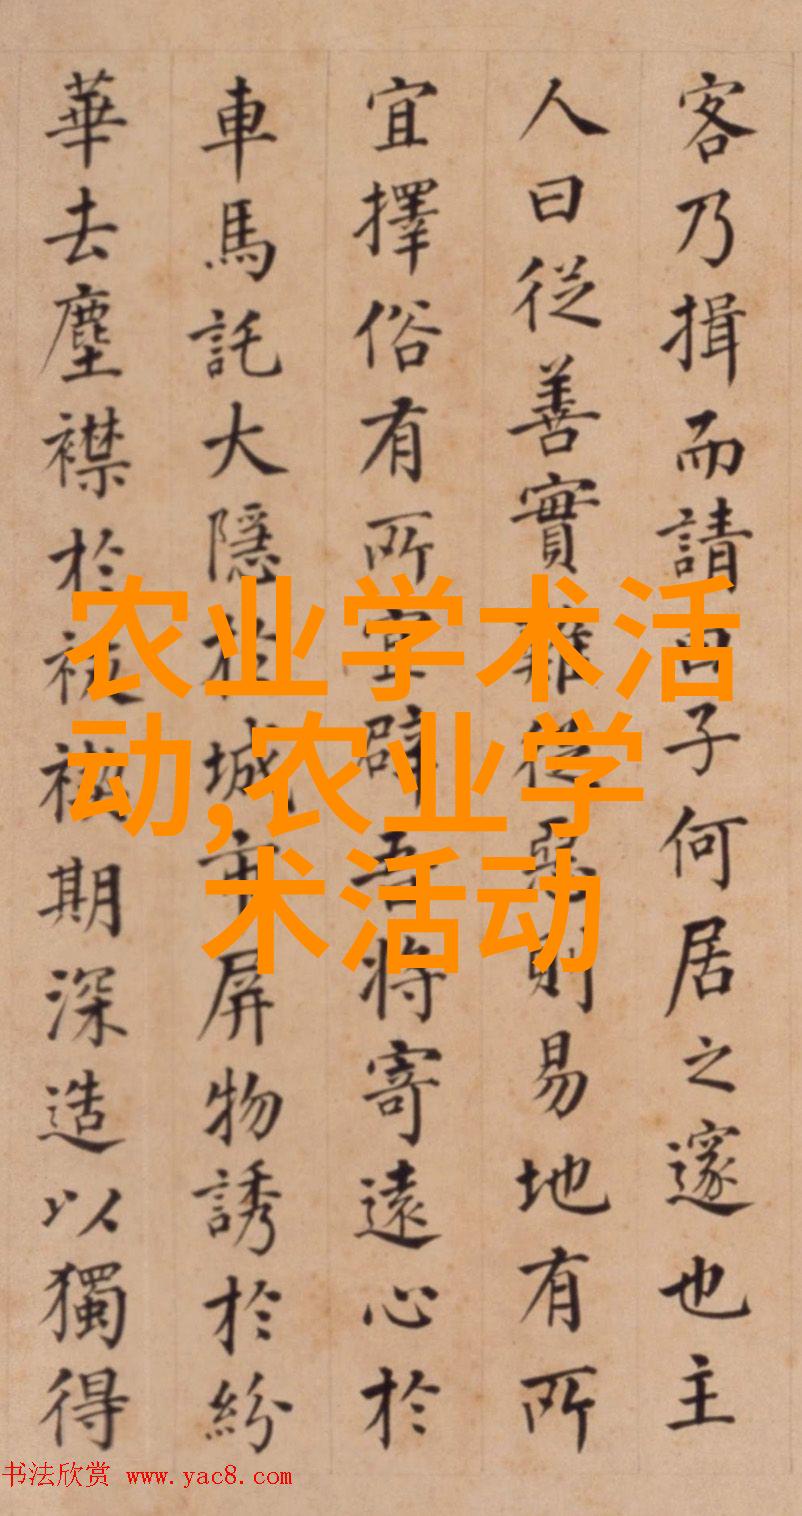 客乃揖而請曰子何居之邃也主
人曰從善實難從惡則易地有所
宜擇俗有所宜辟吾將寄遠心於
車馬託大隱於城市屏物誘於紛
華去塵襟於期深造以獨得
农业学术活
动,农业学
术活动
书法欣赏 www.yac8.com